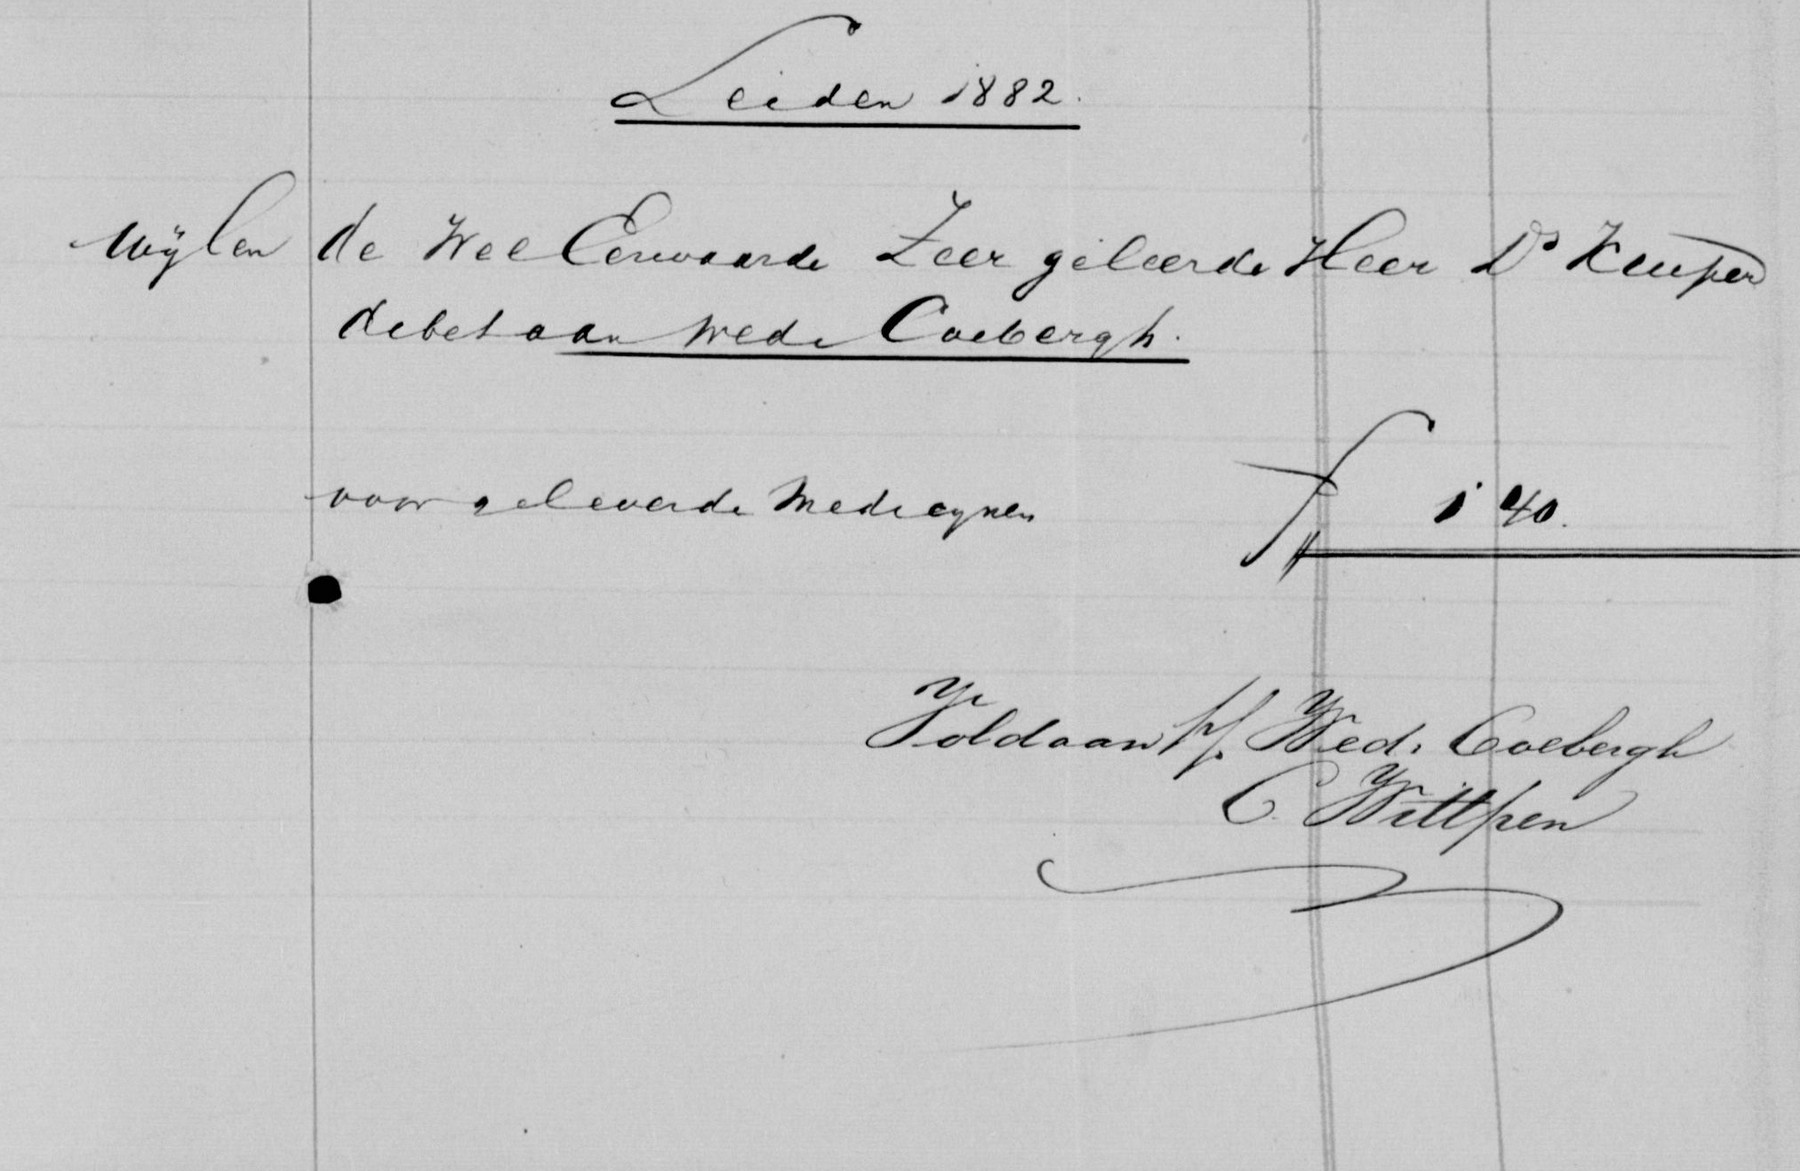 Leiden 1882.
Wijlen de Wel Eerwaarde Zeer geleerde Heer Ds Keuper
debet aan Wede Coebergh.
voor geleverde Medicynen f 1 40.
Voldaan pf. Wed. Coebergh
C. Wittpen